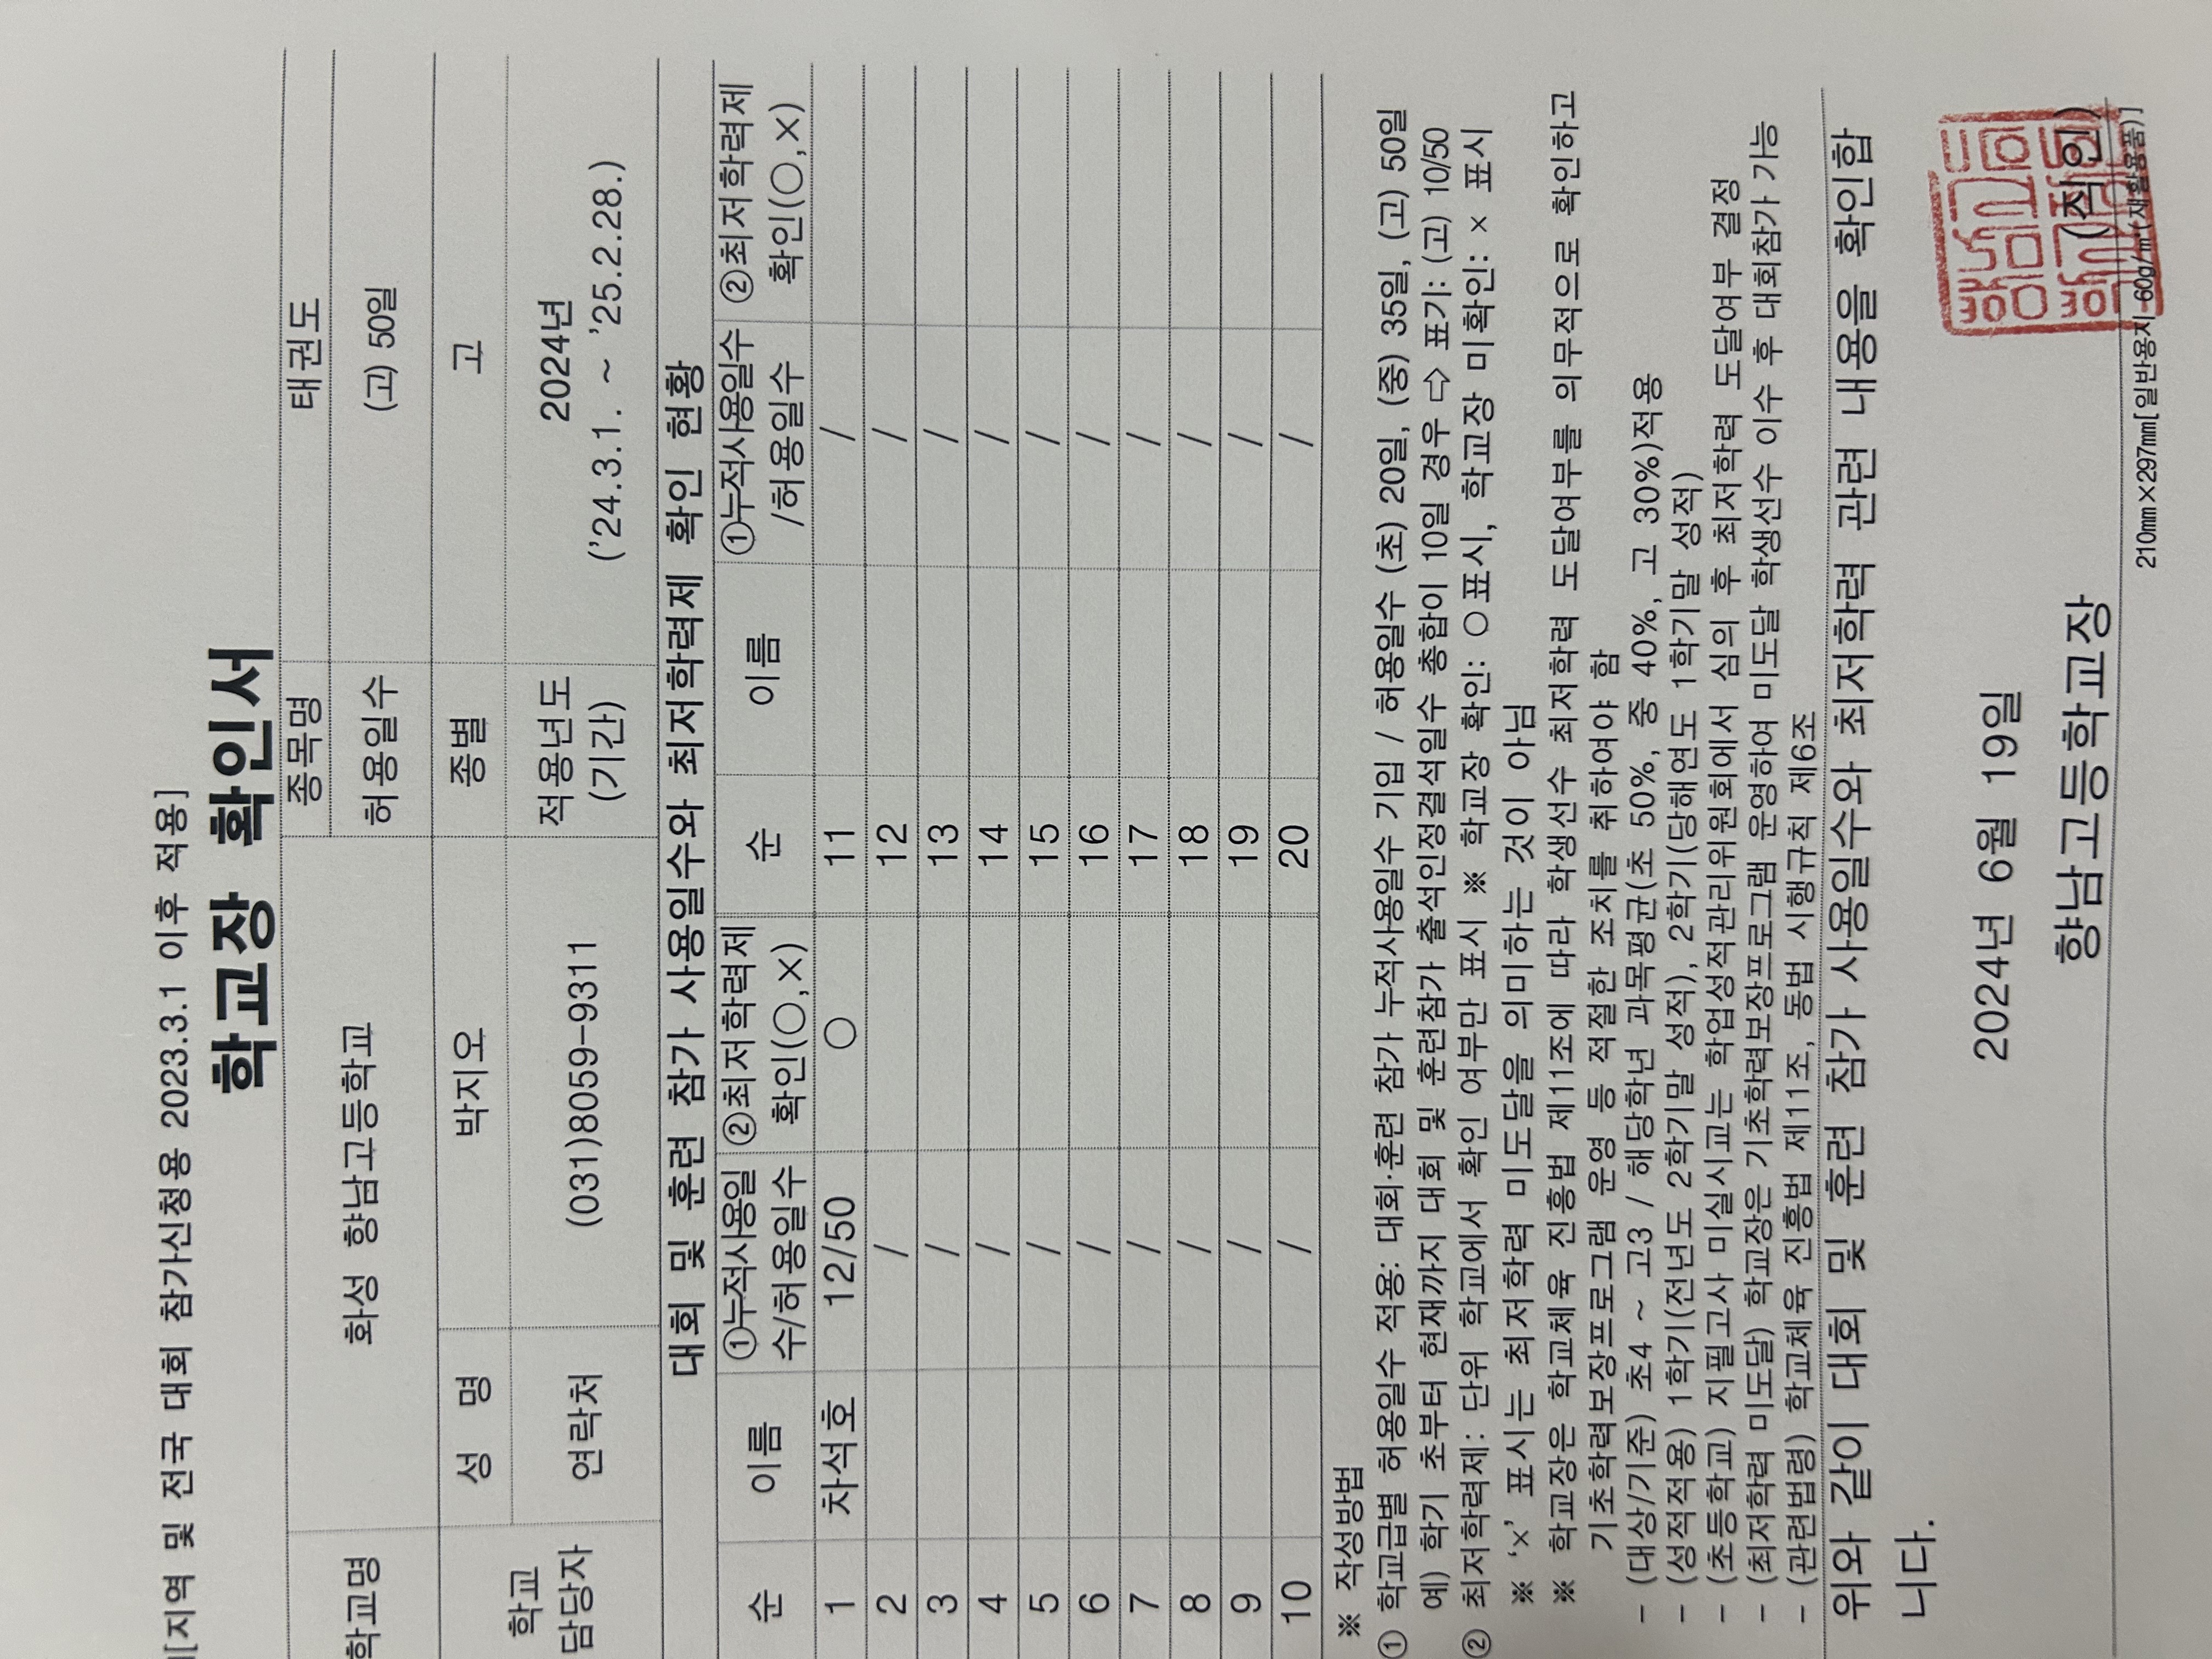 [지역 및 전국 대회 참가신청용 2023.3.1 이후 적용]
학교장 확인서
학교명 화성 향남고등학교 종목명 태권도
허용일수 (고) 50일
학교 담당자 성 명 박지오 종별 고
연락처 (031)8059-9311 적용년도 (기간) 2024년 ('24.3.1. ~ '25.2.28.)
대회 및 훈련 참가 사용일수와 최저학력제 확인 현황
순 이름 ①누적사용일 ②최저학력제 순 이름 ①누적사용일수 ②최저학력제
수/허용일수 확인(○,×) /허용일수 확인(○,×)
1 차석호 12/50 ○ 11 /
2 / 12 /
3 / 13 /
4 / 14 /
5 / 15 /
6 / 16 /
7 / 17 /
8 / 18 /
9 / 19 /
10 / 20 /
※ 작성방법
① 학교급별 허용일수 적용: 대회·훈련 참가 누적사용일수 기입 / 허용일수 (초) 20일, (중) 35일, (고) 50일
예) 학기 초부터 현재까지 대회 및 훈련참가 출석인정결석일수 총합이 10일 경우 ⇨ 표기: (고) 10/50
② 최저학력제: 단위 학교에서 확인 여부만 표시 ※ 학교장 확인: ○표시, 학교장 미확인: × 표시
※ '×' 표시는 최저학력 미도달을 의미하는 것이 아님
※ 학교장은 학교체육 진흥법 제11조에 따라 학생선수 최저학력 도달여부를 의무적으로 확인하고
기초학력보장프로그램 운영 등 적절한 조치를 취하여야 함
- (대상/기준) 초4 ~ 고3 / 해당학년 과목평균(초 50%, 중 40%, 고 30%)적용
- (성적적용) 1학기(전년도 2학기말 성적), 2학기(당해연도 1학기말 성적)
- (초등학교) 지필고사 미실시교는 학업성적관리위원회에서 심의 후 최저학력 도달여부 결정
- (최저학력 미도달) 학교장은 기초학력보장프로그램 운영하여 미도달 학생선수 이수 후 대회참가 가능
- (관련법령) 학교체육 진흥법 제11조, 동법 시행규칙 제6조
위와 같이 대회 및 훈련 참가 사용일수와 최저학력 관련 내용을 확인합
니다.
2024년 6월 19일
향남고등학교장 (직인)
210㎜×297㎜[일반용지 60g/㎡(재활용품)]